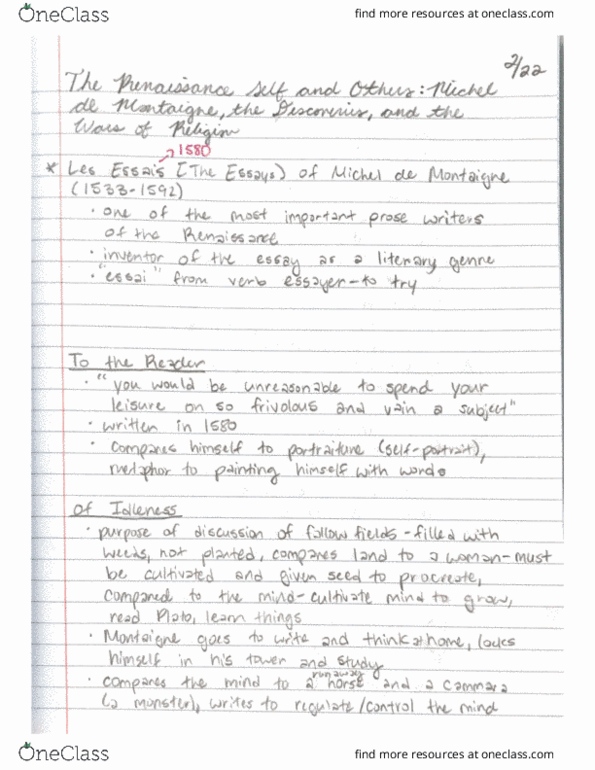 OneClass
find more resources at oneclass.com
2/22
The Renaissance Self and Others: Michel
de Montaigne, the Discoveries, and the
Wars of Religion
1580
* Les Essais [The Essays) of Michel de Montaigne
(1533-1592)
· one of the most important prose writers
of the Renaissance
· inventor of the essay as a literary genre
· "essai" from verb essayer - to try
To the Reader
· "you would be unreasonable to spend your
leisure on so frivolous and vain a subject"
· written in 1580
· compares himself to portraiture (self-portrait),
metaphor to painting himself with words
Of Idleness
· purpose of discussion of fallow fields - filled with
weeds, not planted, compares land to a woman - must
be cultivated and given seed to procreate,
compared to the mind - cultivate mind to grow,
read Plato, learn things
· Montaigne goes to write and think at home, locks
himself in his tower and study
runaway
· compares the mind to a horse and a cammara
(a monster), writes to regulate/control the mind
OneClass
find more resources at oneclass.com